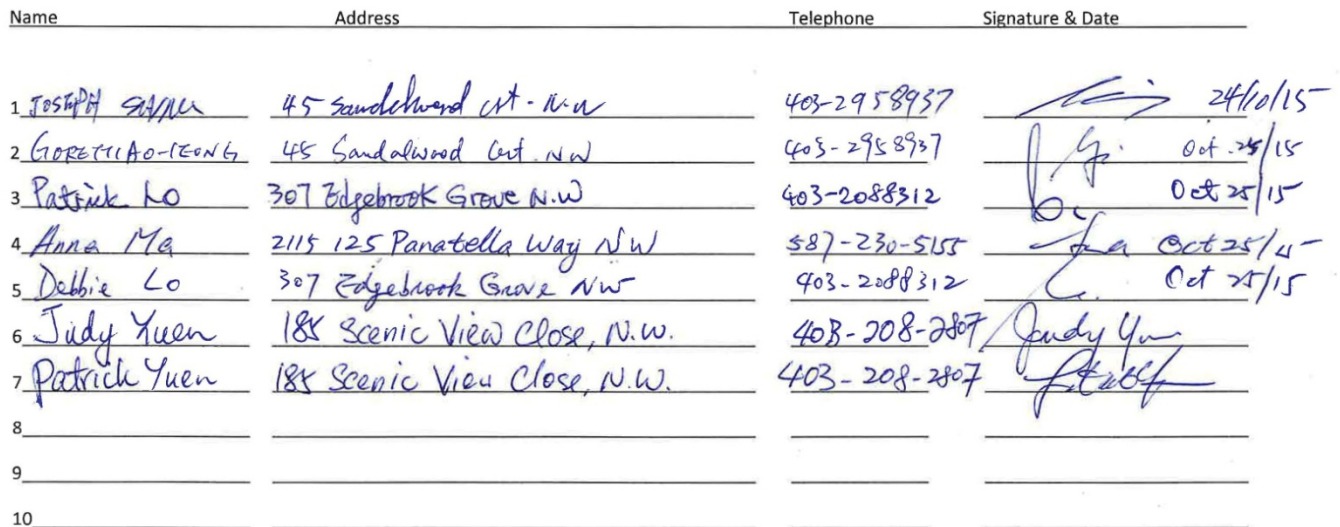 Name Address Telephone Signature & Date
1 JOSEPH 45 N.W 403-2958937 24/10/15
2 GORETTI AO-IEONG 45 Sandalwood Crt NW 403-2958937 Oct 25/15
3 Patrick Lo 307 Edgebrook Grove N.W 403-2088312 Oct 25/15
4 Anna Ma 2115 125 Panatella Way NW 587-230-5155 Oct 25/15
5 Debbie Lo 307 Edgebrook Grove NW 403-2088312 Oct 25/15
6 Judy Yuen 185 Scenic View Close, N.W. 403-208-2807 Judy
7 Patrick Yuen 185 Scenic View Close, N.W. 403-208-2807
8
9
10